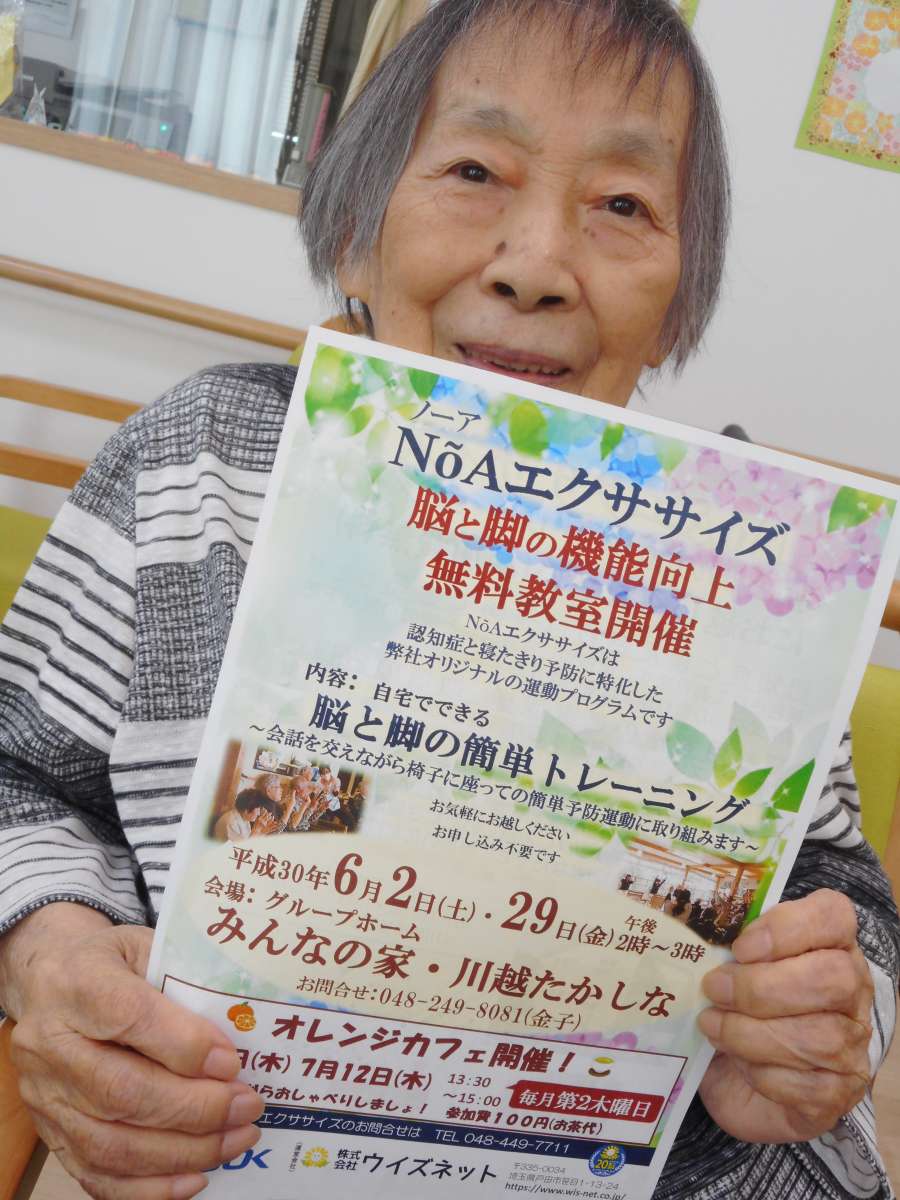 ノーア
NõAエクササイズ
脳と脚の機能向上
無料教室開催
NõAエクササイズは
認知症と寝たきり予防に特化した
弊社オリジナルの運動プログラムです
内容：自宅でできる
脳と脚の簡単トレーニング
～会話を交えながら椅子に座っての簡単予防運動に取り組みます～
お気軽にお越しください
お申し込み不要です
平成30年6月2日(土)・29日(金) 午後2時～3時
会場：グループホーム
みんなの家・川越たかしな
お問合せ：048-249-8081(金子)
オレンジカフェ開催！
日(木) 7月12日(木) 13:30～15:00 毎月第2木曜日
らおしゃべりしましょ！ 参加費100円(お茶代)
エクササイズのお問合せは TEL 048-449-7711
株式会社ウイズネット
〒335-0034
埼玉県戸田市笹目1-13-24
https://www.wis-net.co.jp/